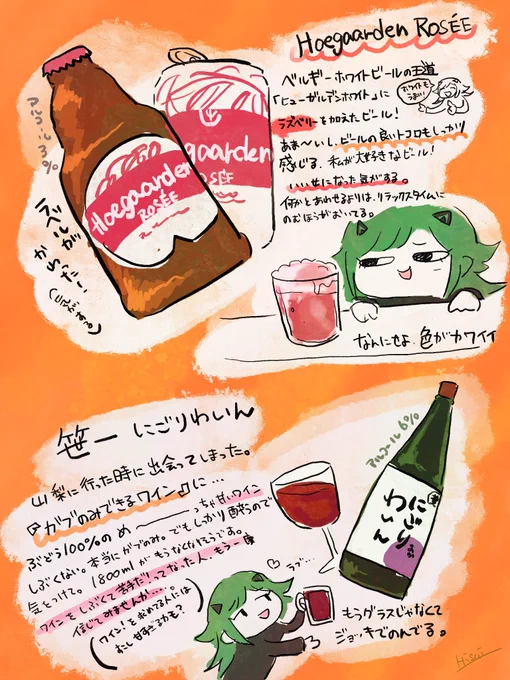 Hoegaarden ROSÉE
ベルギーホワイトビールの王道
「ヒューガルデンホワイト」に
ラズベリーを加えたビール!
あま〜いし、ビールの良いトコロもしっかり
感じる、私が大好きなビール!
いい女になった気がする。
何かとあわせるよりは、リラックスタイムに
のむほうがおいてる。
ホワイトも
うまい!
アルコール 3%
Hoegaarden
ROSÉE
gaarden
OSÉE
なんにせよ、色がカワイイ
笹一 にごりわいん
山梨に行った時に出会ってしまった。
"ガブのみできるワイン"に…
ぶどう100%のめーーーっちゃ甘いワイン
しぶくない。本当にガブのみ。でもしっかり酔うので
気をつけて。1800mlがもうなくなりそうです。
ワインを、しぶくて苦手だ!ってなった人、もう一度
信じてみませんか……。
(ワイン!を求めてる人には
むしろ甘すぎるかも?)
アルコール 6%
にごり
わいん
ラブ…
もうグラスじゃなくて
ジョッキでのんでる。
Hisui